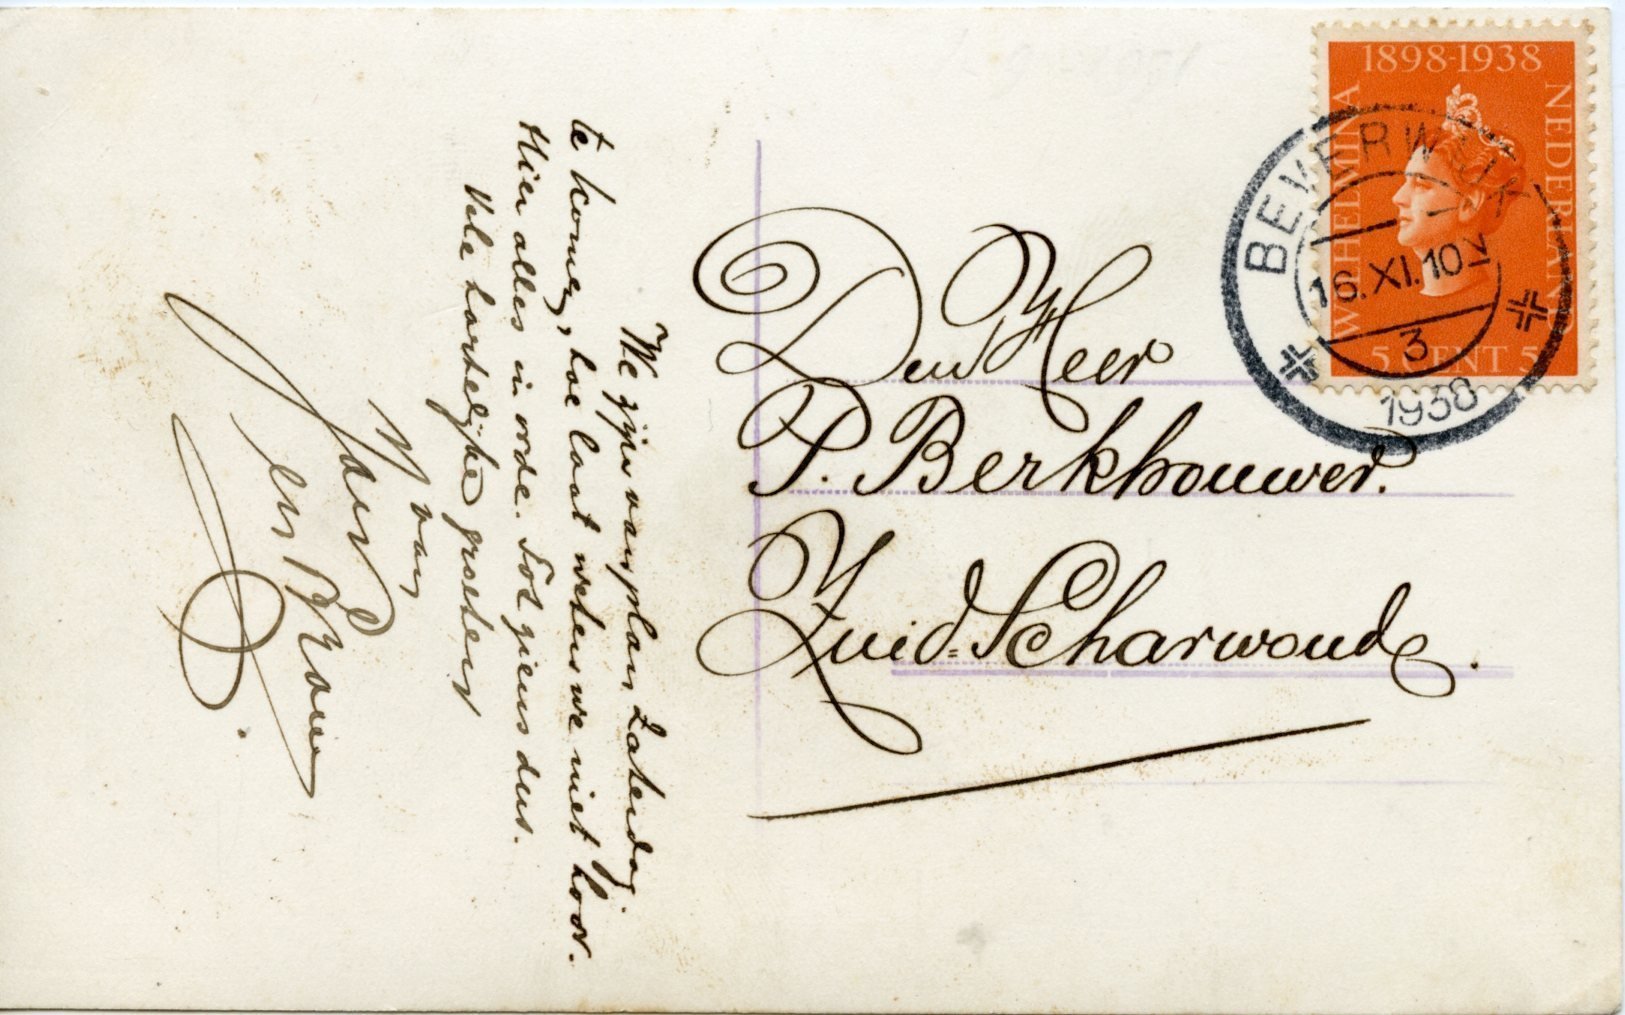 We zijn van plan Zaterdag
te komen, hoe laat weten we niet hoor.
Hier alles in orde. Tot ziens dus.
Vele hartelijke groeten
van
Jan
en
Den Heer
P. Berkhouwer.
Zuid=Scharwoude.
1898-1938
WILHELMINA
NEDERLAND
5 CENT 5
BEVERWIJK
16.XI.10 V
3
1938